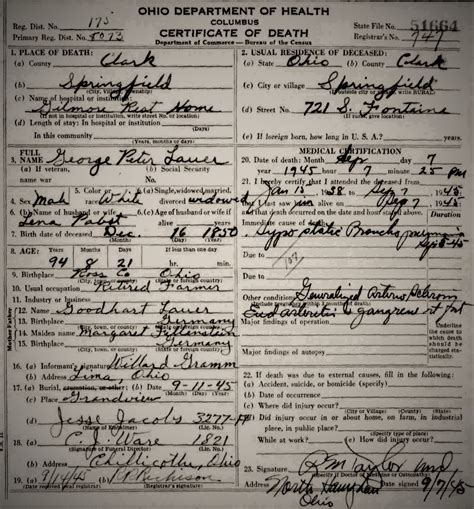 OHIO DEPARTMENT OF HEALTH
COLUMBUS
CERTIFICATE OF DEATH
Department of Commerce—Bureau of the Census
Reg. Dist. No. 175
State File No. 51664
Primary Reg. Dist. No. 8073
Registrar's No. 747
1. PLACE OF DEATH:
(a) County Clark
(b) Springfield
(City, village, township)
(c) Name of hospital or institution:
Gilmore Rest Home
(If not in hospital or institution, write street No. or location)
(d) Length of stay: In hospital or institution
(Days)
In this community
(Years) (Months) (Days)
2. USUAL RESIDENCE OF DECEASED:
(a) State Ohio (b) County Clark
(c) City or village Springfield
(d) Street No. 721 S. Fountain
(e) If foreign born, how long in U. S. A.?
3. FULL NAME George Peter Lauer
(a) If veteran, war
(b) Social Security No.
4. Sex Male
5. Color or race White
6. (a) Single, widowed, married, divorced widowed
6. (b) Name of husband or wife
Lena Pabst
7. Birth date of deceased Dec. 16 1850
(Month) (Day) (Year)
8. AGE: Years Months Days
94 8 21
hr. min.
9. Birthplace Ross Co. Ohio
(City, town, or county) (State or foreign country)
10. Usual occupation Retired Farmer
11. Industry or business
12. Name Goodhart Lauer
13. Birthplace Germany
14. Maiden name Margaret
15. Birthplace Germany
16. (a) Informant's signature Willard Gramm
(b) Address Lima Ohio
17. (a) Burial, cremation, or other (b) Date 9-11-45
(c) Place Grandview
(d) Jesse Jacobs 3277-A
18. C. E. Ware 1821
(b) Address Chillicothe, Ohio
19. (a) 9/11/45 (b)
(Registrar's signature)
MEDICAL CERTIFICATION
20. Date of death: Month Sep day 7
year 1945 hour 7 minute 25 P.M.
21. I hereby certify that I attended the deceased from
Jan 15 1938 to Sep 7, 1945
that I last saw him alive on Sep 7, 1945
and that death occurred on the date and hour stated above.
Immediate cause of death Duration
Hypostatic Broncho pneumonia
Due to
107
Due to
Other conditions Generalized Arterio Sclerosis
gangrene rt foot
Major findings of operation
Major findings of autopsy
Underline the cause to which death should be charged statistically
22. If death was due to external causes, fill in the following:
(a) Accident, suicide, or homicide (specify)
(b) Date of occurrence
(c) Where did injury occur?
(City or Village) (County) (State)
(d) Did injury occur in or about home, on farm, in industrial place, in public place?
While at work? (e) How did injury occur?
23. Signature R M Taylor
Address North Hampton Ohio Date signed 9/7/45